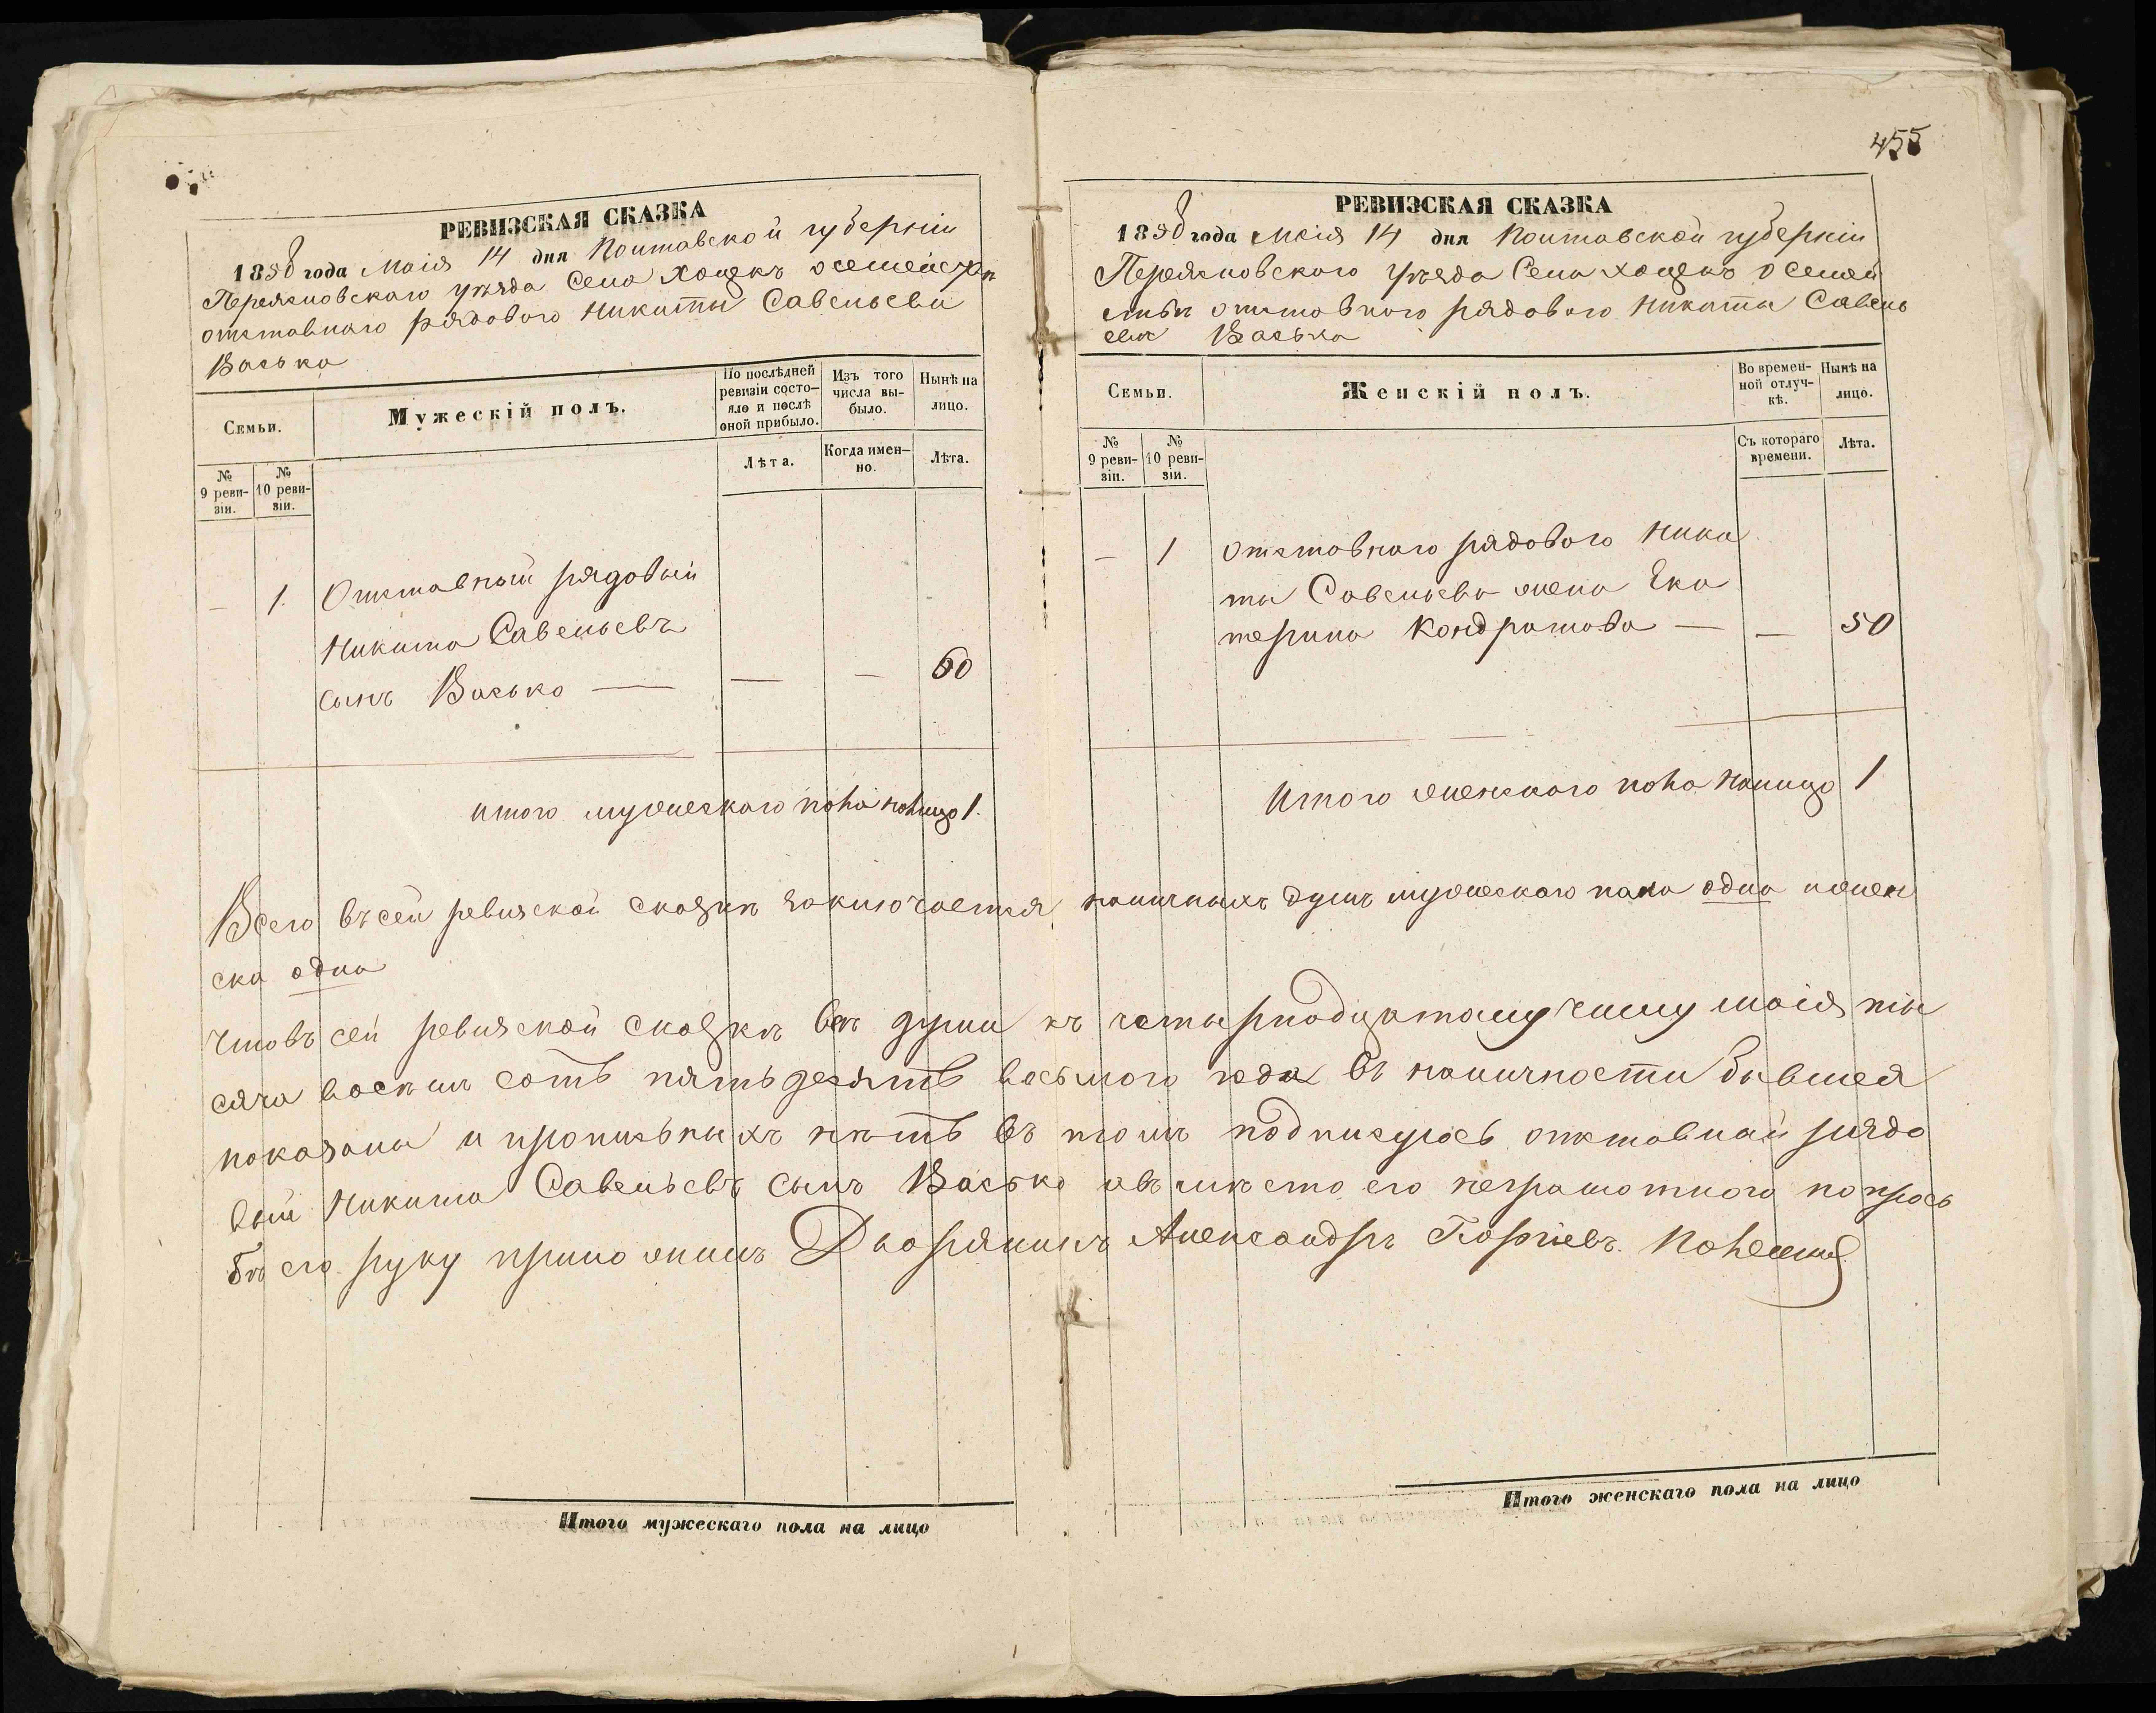 455
РЕВИЗСКАЯ СКАЗКА
1858 года Маія 14 дня Полтавской губерніи
Переясловского уезда Села Хоцекъ осемействѣ
отставнаго рядового Никиты Савельева
Васька
Семьи.
Мужескій полъ.
По послѣдней ревизіи состояло и послѣ оной прибыло.
Изъ того числа выбыло.
Нынѣ на лицо.
№ 9 ревизіи.
№ 10 ревизіи.
Лѣта.
Когда именно.
Лѣта.
— 1. Отставный рядовый
Никита Савельевъ
сынъ Васько — — — 60
итого мужескаго пола налицо 1.
РЕВИЗСКАЯ СКАЗКА
1858 года Маія 14 дня Полтавской губерніи
Переясловского уѣзда Села Хоцекъ о семей
ствѣ отставного рядового Никиты Савель
ева Васька
Семьи.
Женскій полъ.
Во временной отлучкѣ.
Нынѣ на лицо.
№ 9 ревизіи.
№ 10 ревизіи.
Съ котораго времени.
Лѣта.
— 1 Отставного рядового Ники
ты Савельева жена Ека
терина Кондратова — — 50
Итого женского пола налицо 1
Всего въ сей ревизской сказкѣ заключается наличныхъ душъ мужеского пола одна и женс
ска одна
Что въ сей ревизской сказкѣ все души къ четырнадцатому числу маія ты
сяча восемь сотъ пятьдесятъ восьмого года въ наличности бывшея
показаны и прописныхъ нѣтъ въ томъ подписуюсь отставной рядо
вый Никита Савельевъ сынъ Васько авъ мѣсто его неграмотного по прось
бѣ его руку приложилъ Дворянинъ Александръ Георгіевъ
Итого мужескаго пола на лицо
Итого женскаго пола на лицо